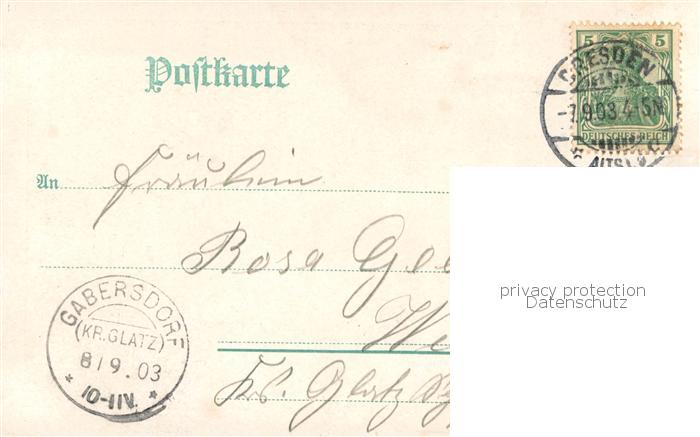 Postkarte
5 5
DRESDEN
-7.9.03.4-5N
DEUTSCHES REICH
* ALTST. c
An Fräulein
Rosa
privacy protection
Datenschutz
GABERSDORF
(KR. GLATZ)
8/9.03
* 10-11V. *
Kr. Glatz